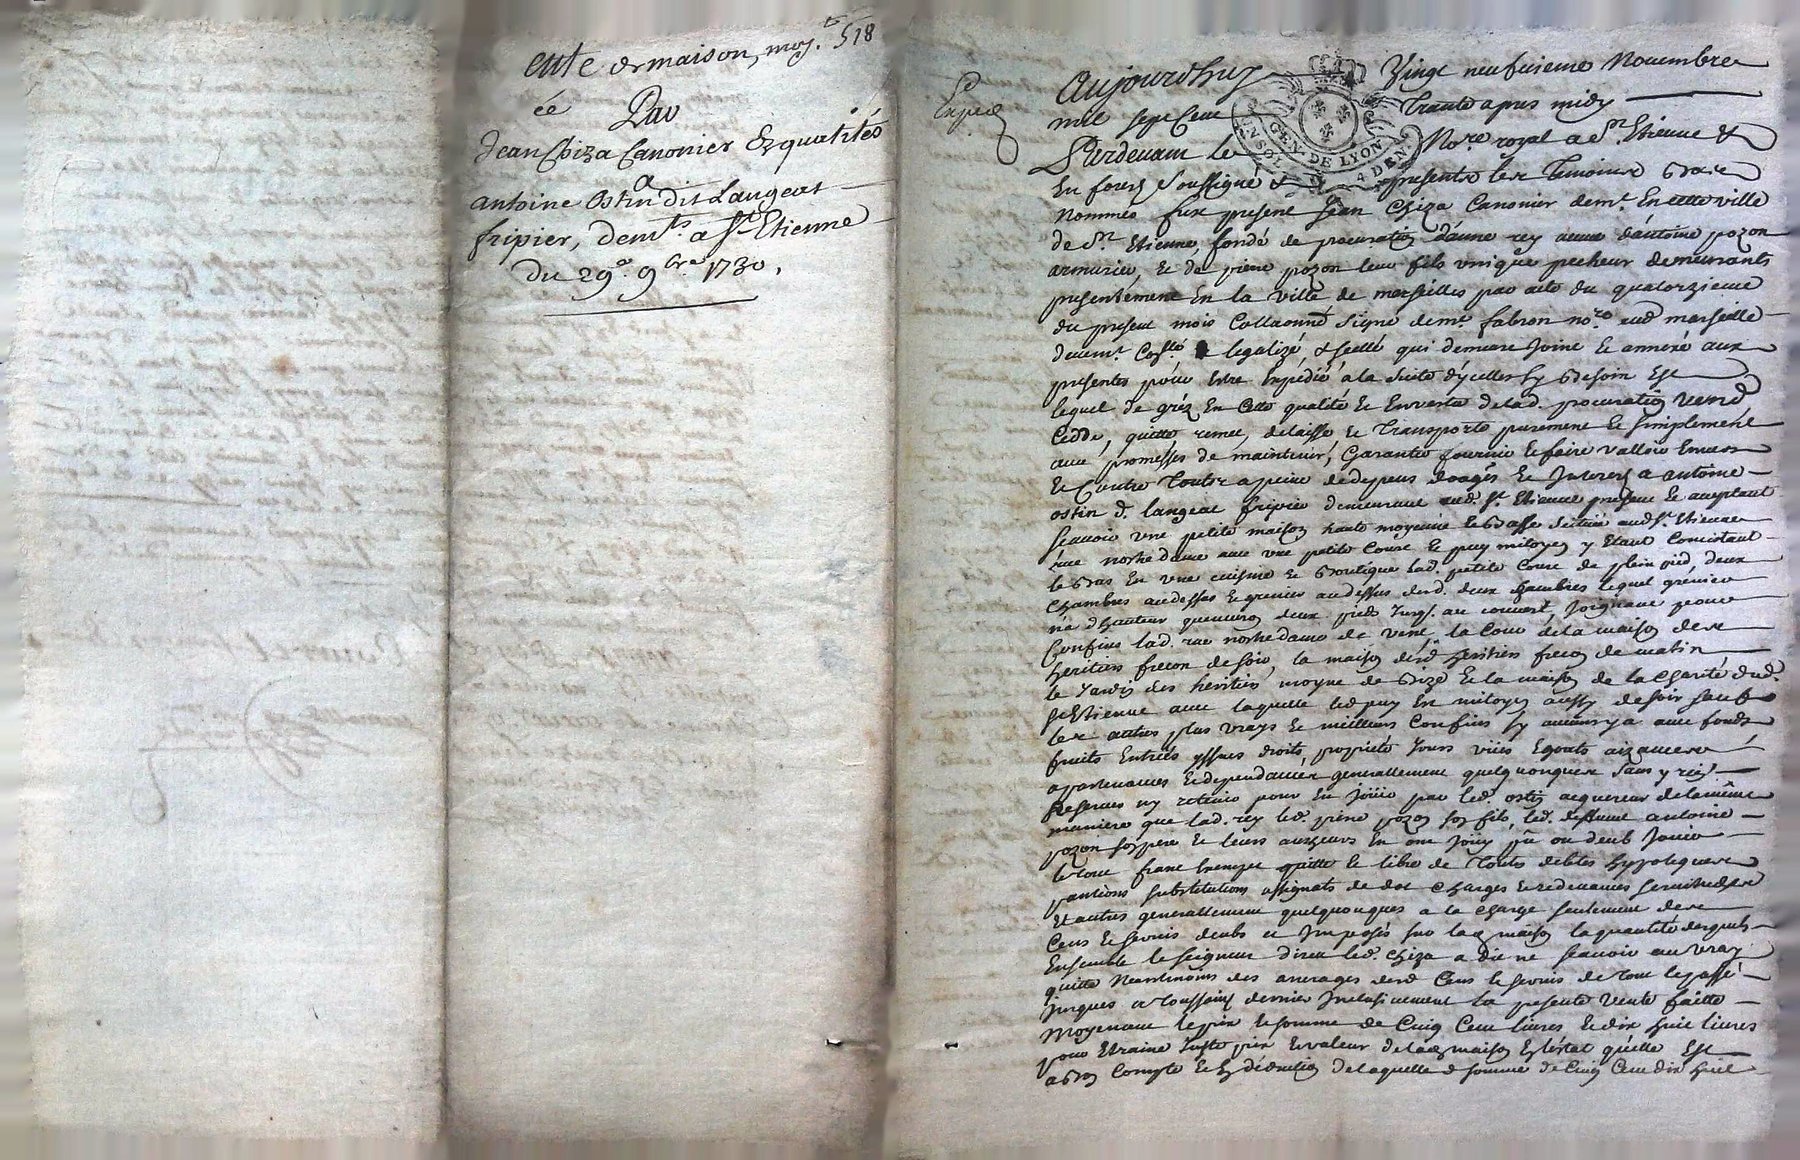 ente de maison, moy.t 518
ée Par
Jean Chiza Canonier Ez qualités
a
antoine Ostin dit Langeat
fripier, demts. a St. Etienne
du 29e. 9bre. 1730.
Exped
Aujourdhuy Vingt neufuieme Nouembre
mil sept Cent Trante apres midy
Pardeuant le Nore. royal a St. Etienne
GEN. DE LYON
4 DEN.
En forez soussigné & presents les Temoins Bas
Nommés fut present Jean Chiza Canonier demt. En cette ville
de St. Etienne, fondé de procuration danne rey veuue dantoine pozon
armurier, & de pierre pozon leur fils vnique pecheur demeurants
presentement En la ville de merseille par acte du quatorzieme
du present mois Collaonné signé de me. fabron nore. aud marseille
deuemt. legalizé, & scellé qui demeure Joint & annexé aux
presentes pour Estre Expedié a la suitte d'ycelles sy Besoin Est
lequel de gréz En Cette qualité & En vertu de lad. procuration vend
Cedde, quitte remet, delaisse & Transporte purement & simplement
auec promesses de maintenir, Garantir fournir & faire valloir Enuers
& Contre Touts a peine de depens domages & Interests a antoine
ostin d. langeat fripier demeurant aud. St. Etienne present & aceptant
scauoir vne petite maison haute moyenne & Basse scituée aud St. Etienne
rue nostre dame auec vne petite Cour & puy mitoyen y Etant Consistant
le Bas En vne cuisine & Boutique lad. petite Cour de plein pied, deux
Chambres audessus & grenier audessus desd. deux chambres lequel grenier
na d'hauteur deux pieds Jusq. au couuert, Joignant pour
Confins lad. rue nostre dame de vent, la Cour de la maison des
heritiers freton de soir, la maison desd heritiers freton de matin
le Jardin des heritiers moyne de Bize & la maison de la Charité dud.
St Etienne auec laquelle led puy Est mitoyen aussy de soir sauf
les autres plus vrays & meilleurs Confins sy aucuns y a auec fonds
fruits Entrées yssues droits, proprieté Jours vües Egouts aizances
appartenances & dependances generallement quelquonques sans y rien
Reseruer ny retenir pour En Joüir par led. ostin acquereur de la même
maniere que lad. rey led. pierre pozon son fils, led. deffunt antoine
pozon son pere & leurs autheurs En ont Joüy pû ou deub Jouir
le Tout franc quitte & libre de Toutes debtes hypoteques
pantions substitutions assignats de dot Charges & redeuances seruitudes
& autres generallement quelquonques a la charge seulement des
Cens & seruis deubs et Imposés sur lad maison la quantité desquels
Ensemble le seigneur direct led. Chiza a dit ne scauoir au vray
quitte Neantmoins des arrerages desd Cens & seruis de Tout le passé
Jusques a la Toussaint dernier Inclusiuement la presente Vente faitte
Moyennant le prix & somme de Cinq Cent liures & dix huit liures
pour Etraine Juste prix & valeur de lad maison En l'etat qu'elle Est
a Bon Compte & En déduction de laquelle somme de Cinq Cent dix huit